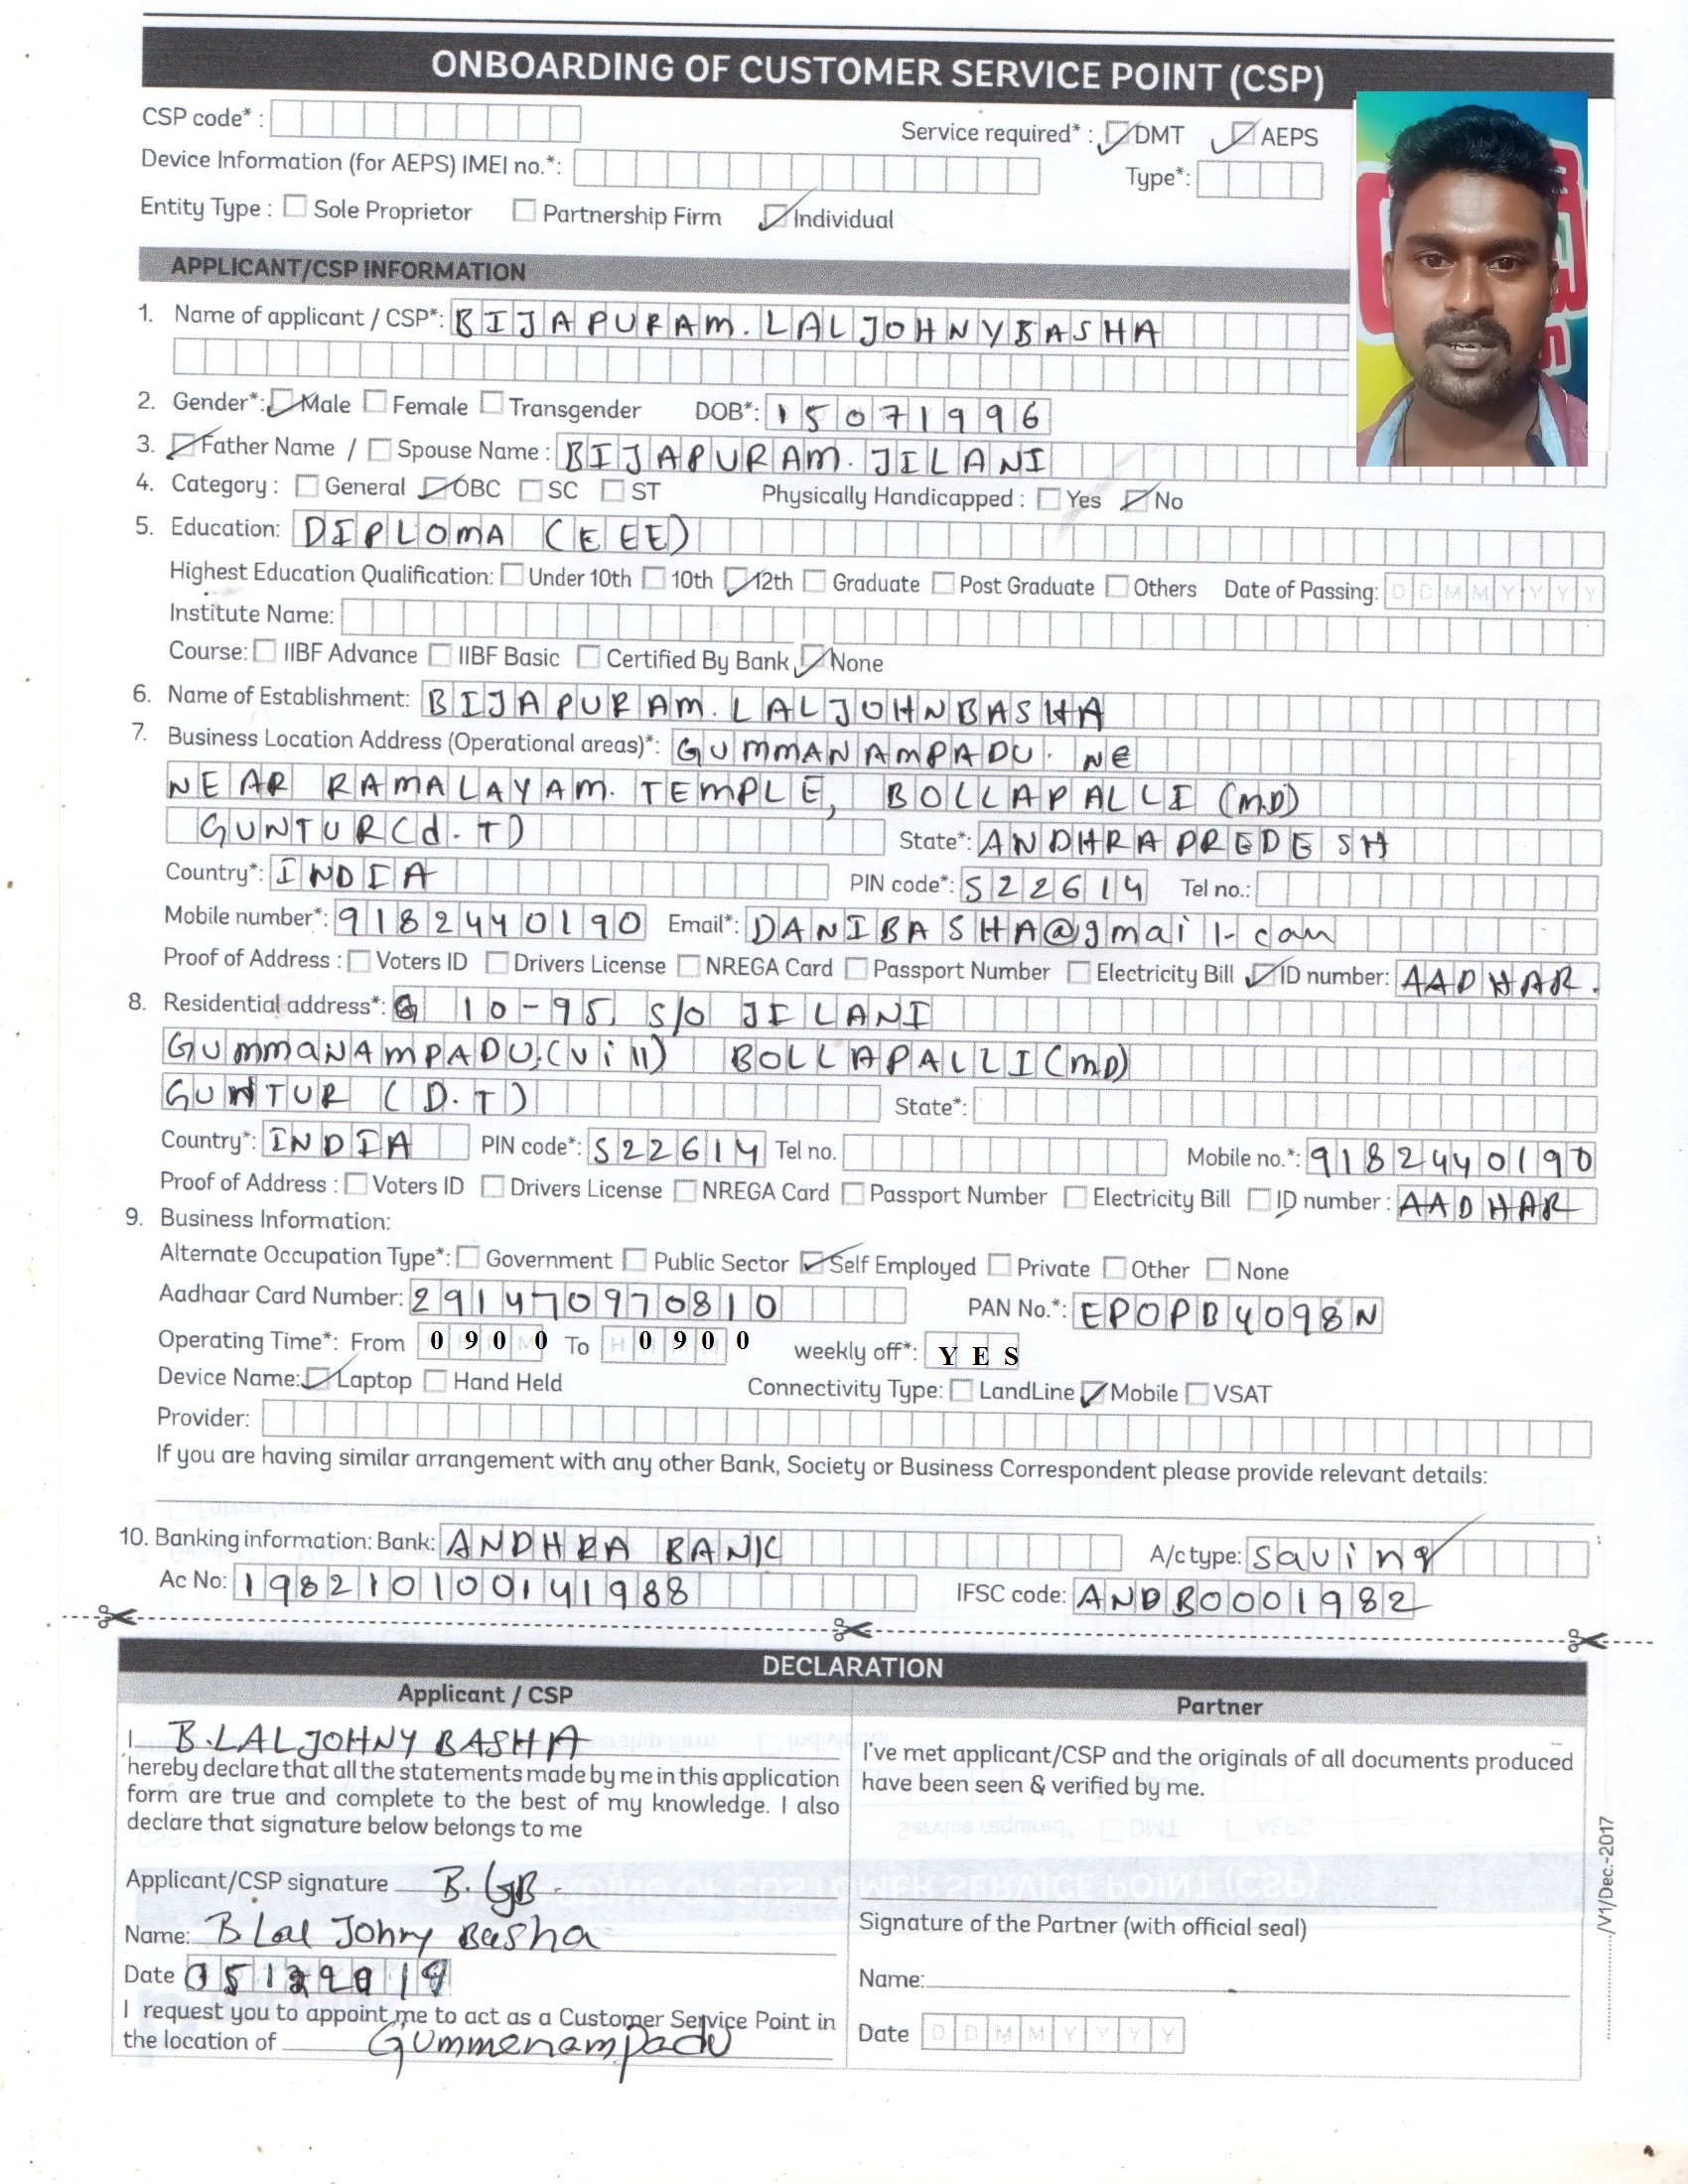 ONBOARDING OF CUSTOMER SERVICE POINT (CSP)
CSP code* : Service required* : DMT AEPS
Device Information (for AEPS) IMEI no.*: Type*:
Entity Type : Sole Proprietor Partnership Firm Individual
APPLICANT/CSP INFORMATION
1. Name of applicant / CSP*: BIJAPURAM. LALJOHNYBASHA
2. Gender*: Male Female Transgender DOB*: 15071996
3. Father Name / Spouse Name : BIJAPURAM. JILANI
4. Category : General OBC SC ST Physically Handicapped : Yes No
5. Education: DIPLOMA (EEE)
Highest Education Qualification: Under 10th 10th 12th Graduate Post Graduate Others Date of Passing: DDMMYYYY
Institute Name:
Course: IIBF Advance IIBF Basic Certified By Bank None
6. Name of Establishment: BIJAPURAM. LALJOHNBASHA
7. Business Location Address (Operational areas)*: GUMMANAMPADU. NE
NEAR RAMALAYAM. TEMPLE, BOLLAPALLI (MD)
GUNTUR(d.T) State*: ANDHRA PREDESH
Country*: INDIA PIN code*: 522614 Tel no.:
Mobile number*: 9182440190 Email*: DANIBASHA@gmail.com
Proof of Address : Voters ID Drivers License NREGA Card Passport Number Electricity Bill ID number: AADHAR.
8. Residential address*: 10-95, S/O JILANI
GUMMANAMPADU,(vill) BOLLAPALLI(MD)
GUNTUR (D.T) State*:
Country*: INDIA PIN code*: 522614 Tel no. Mobile no.*: 9182440190
Proof of Address : Voters ID Drivers License NREGA Card Passport Number Electricity Bill ID number : AADHAR
9. Business Information:
Alternate Occupation Type*: Government Public Sector Self Employed Private Other None
Aadhaar Card Number: 291470970810 PAN No.*: EPOPB4098N
Operating Time*: From 0900 To 0900 weekly off*: YES
Device Name: Laptop Hand Held Connectivity Type: LandLine Mobile VSAT
Provider:
If you are having similar arrangement with any other Bank, Society or Business Correspondent please provide relevant details:
10. Banking information: Bank: ANDHRA BANK A/c type: Saving
Ac No: 198210100141988 IFSC code: ANDB0001982
DECLARATION
Applicant / CSP Partner
I B.LALJOHNY BASHA
hereby declare that all the statements made by me in this application
form are true and complete to the best of my knowledge. I also
declare that signature below belongs to me
I've met applicant/CSP and the originals of all documents produced
have been seen & verified by me.
Applicant/CSP signature
Signature of the Partner (with official seal)
Name: B Lal Johny Basha
Name:
Date
I request you to appoint me to act as a Customer Service Point in
the location of Gummenampadu
Date DDMMYYYY
/V1/Dec.-2017